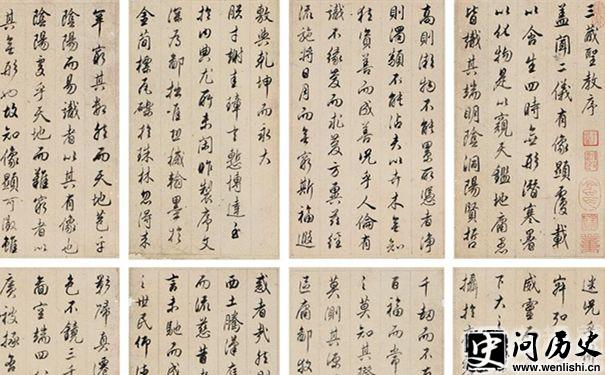 三藏聖教序
盖聞二儀有像顯覆載
以含生四時無形潛寒暑
以化物是以窺天鑑地庸愚
皆識其端明陰洞陽賢哲
高則微物不能累所憑者淨
則濁類不能沾夫以卉木無知
猶資善而成善况乎人倫有
識不緣慶而求慶方冀茲經
流施將日月而無窮斯福遐
敷與乾坤而永大
朕才謝珪璋言慙博達至
於内典尤所未閑昨製序文
深為鄙拙唯恐穢翰墨於
金簡標瓦礫於珠林忽得来
罕窮其數然而天地苞乎
陰陽而易識者以其有像也
陰陽處乎天地而難窮者以
其無形也故知像顯可徵雖
迷况乎
弘
威靈
下大之
攝於
千劫而不
百福而長
之莫知其際
莫測其源
區庸鄙
惑者哉然則
西土騰漢庭
而流慈昔
言未馳而成
之世民仰德
影歸真遷
色不鏡三千
圖空端四八
廣被拯含
问历史
www.wenlishi.cn